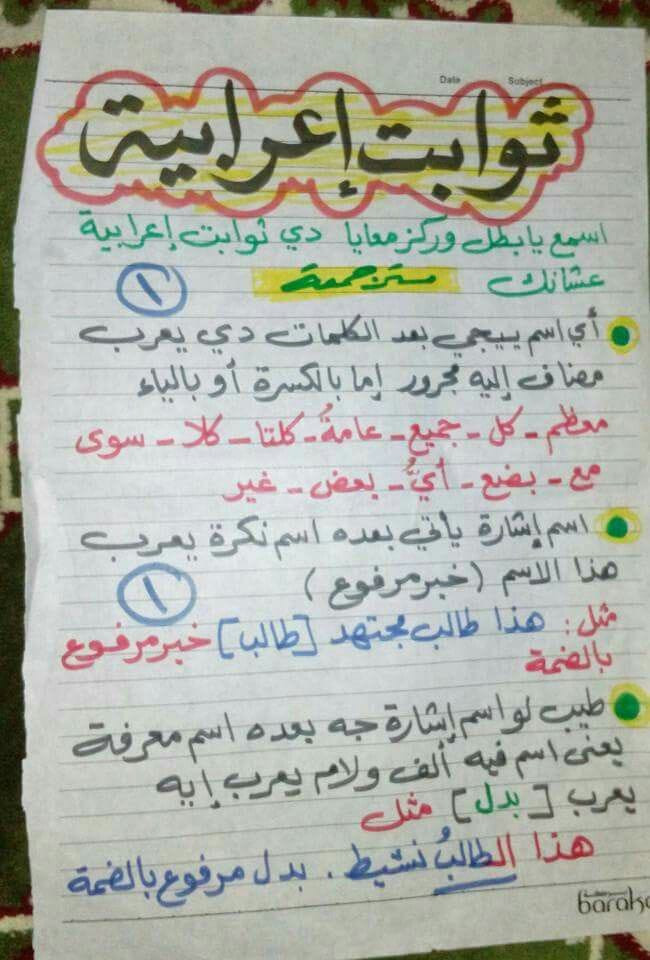 Date Subject
ثوابت إعرابية
اسمع يا بطل وركز معايا دي ثوابت إعرابية
عشانك مسترجمعة
١
أي اسم ييجي بعد الكلمات دي يعرب
مضاف إليه مجرور إما بالكسرة أو بالياء
معظم - كل - جميع - عامةُ - كلتا - كلا - سوى
مع - بضع - أيُّ - بعض - غير
اسم إشارة يأتي بعده اسم نكرة يعرب
هذا الاسم (خبر مرفوع)
١
مثل: هذا طالب مجتهد [طالب] خبر مرفوع
بالضمة
طيب لو اسم إشارة جه بعده اسم معرفة
يعنى اسم فيه ألف ولام يعرب إيه
يعرب [بدل] مثل
هذا الطالبُ نشيط. بدل مرفوع بالضمة
baraka